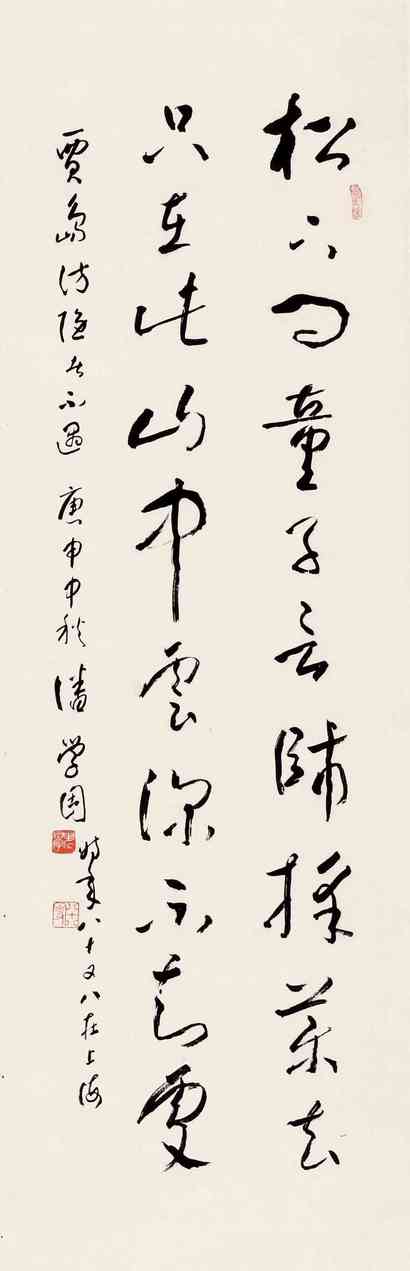 松下问童子言師採药去
只在此山中雲深不知處
賈島訪隐者不遇 庚申中秋 潘学固
時年八十又八在上海